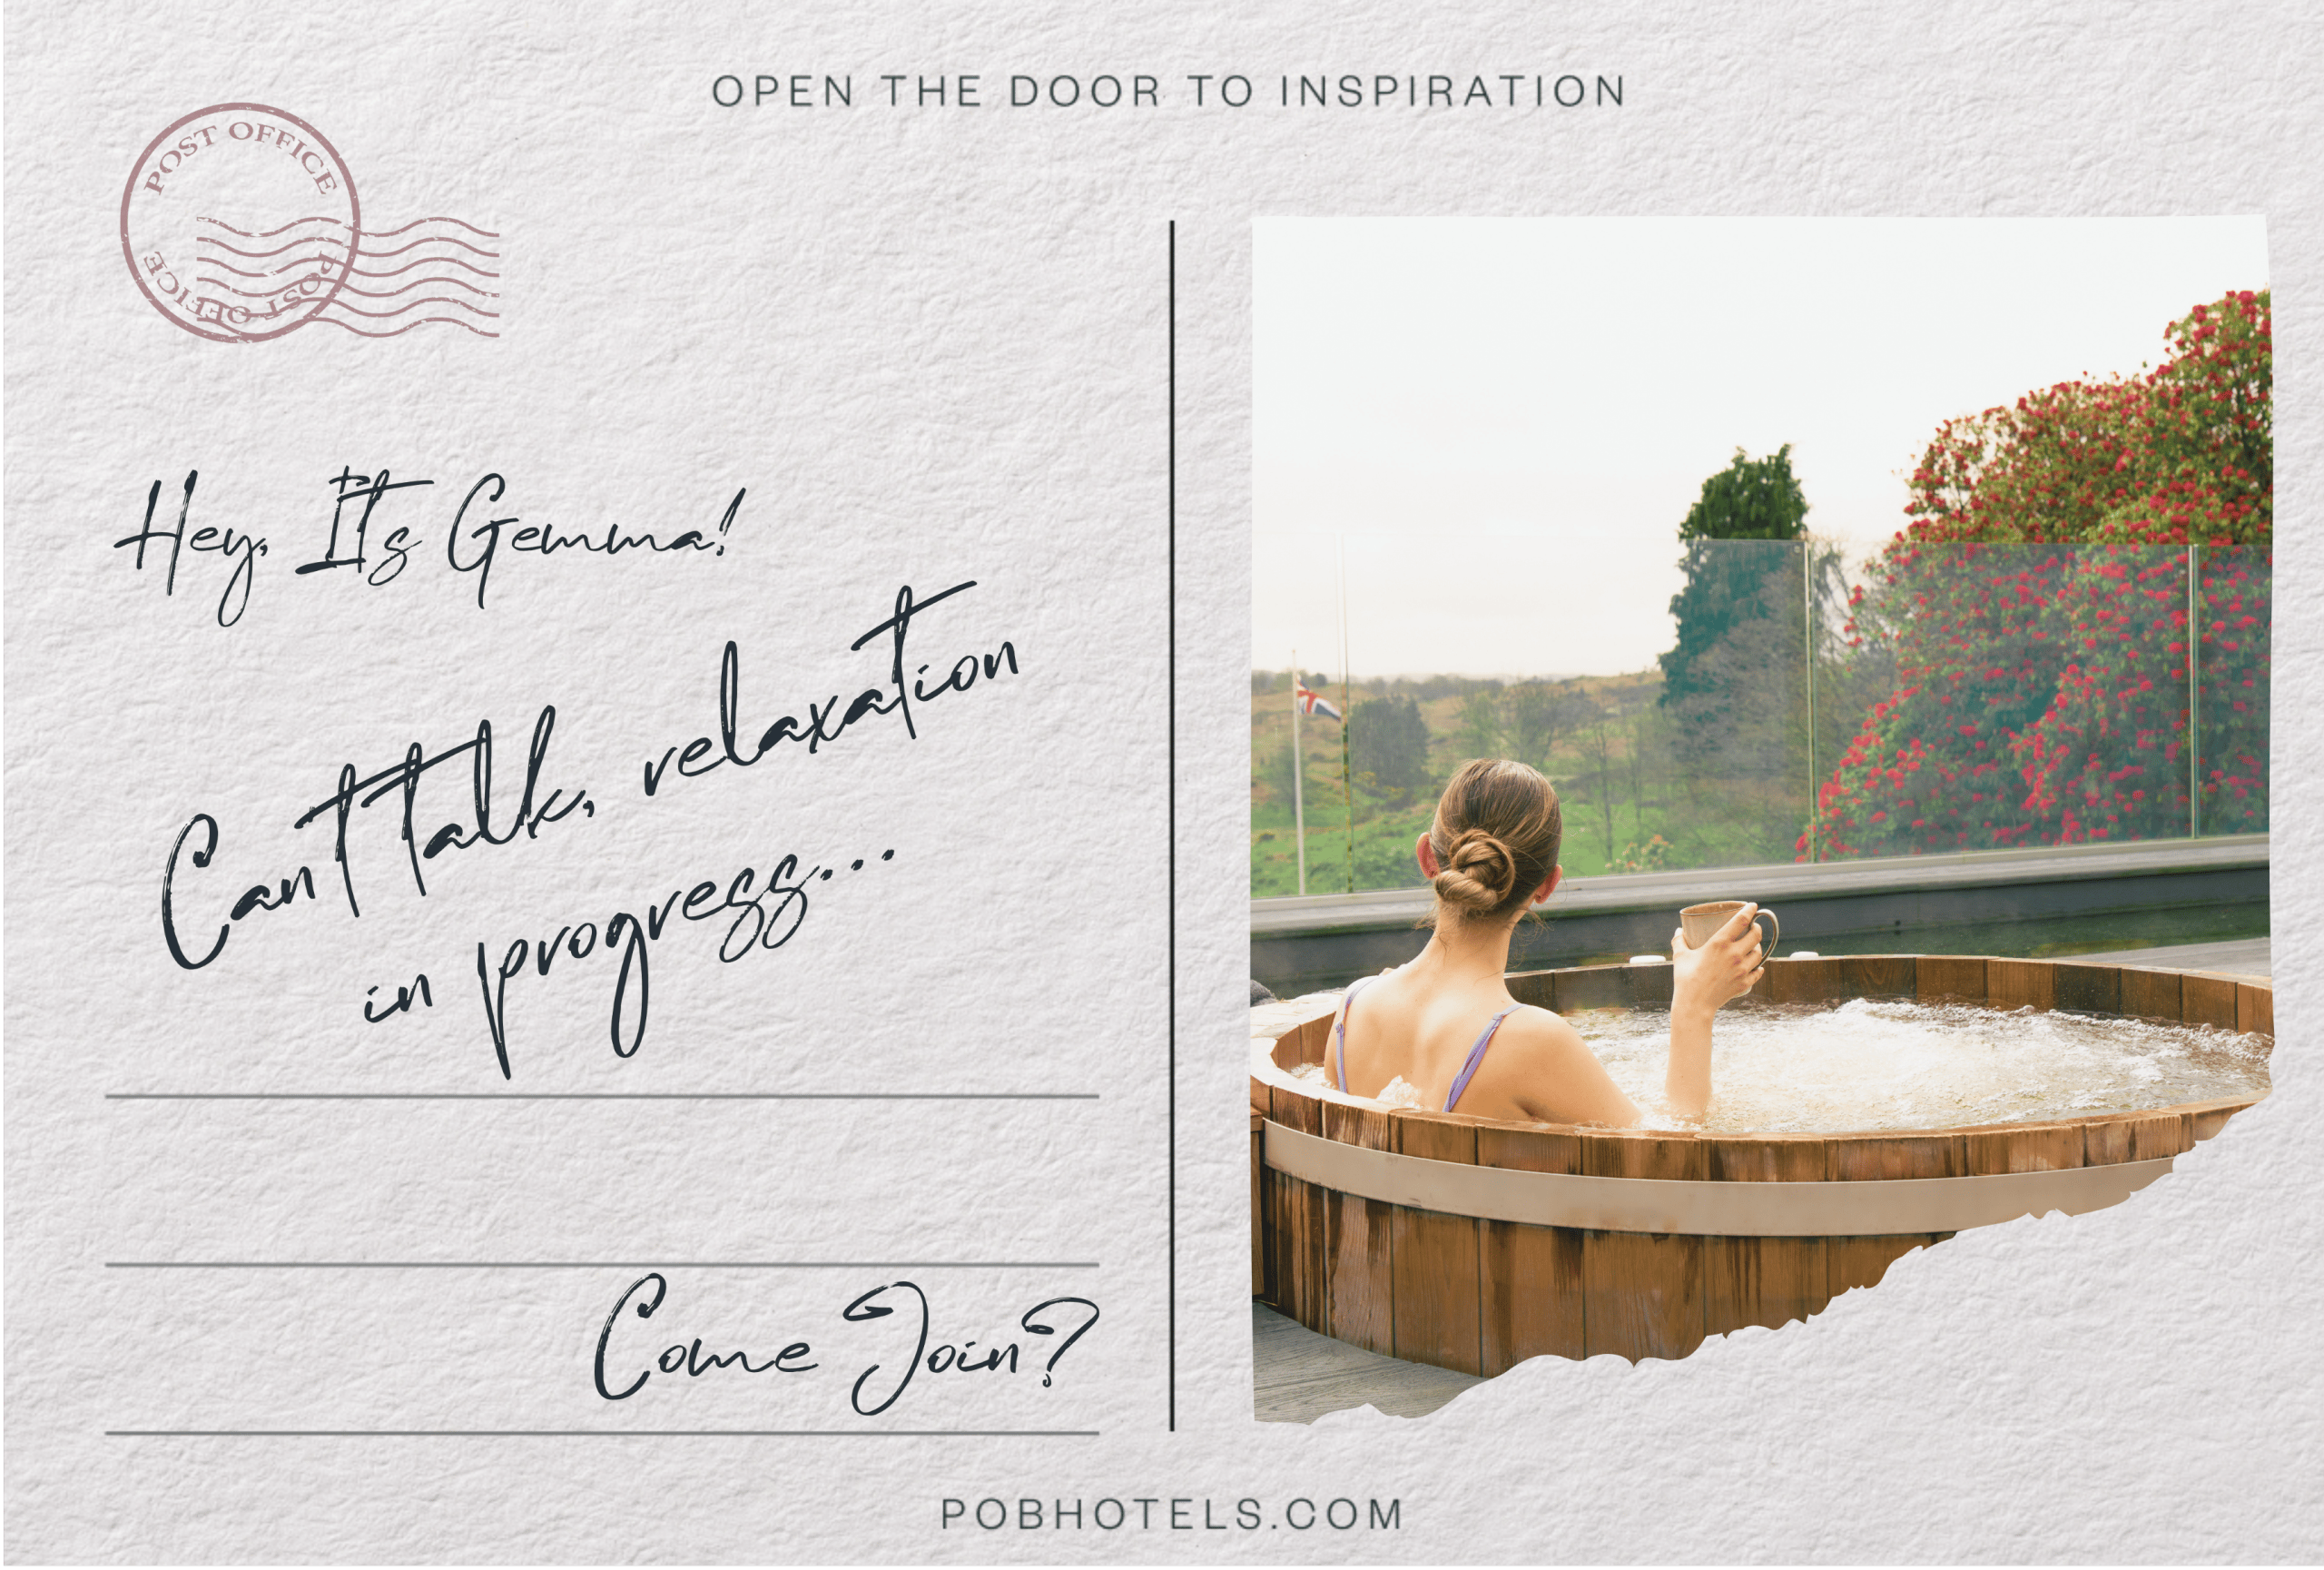 OPEN THE DOOR TO INSPIRATION
POST OFFICE
POST OFFICE
Hey, It's Gemma!
Can't talk, relaxation
in progress...
Come Join?
POBHOTELS.COM